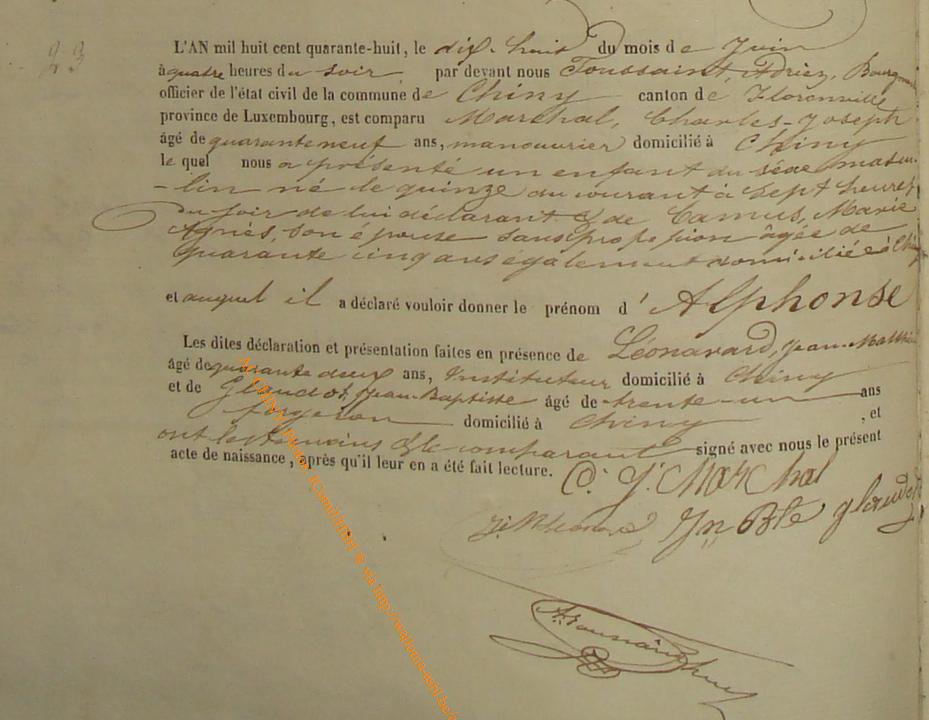 23
L'AN mil huit cent quarante-huit, le dix-huit du mois de Juin
à quatre heures du soir, par devant nous Toussaint, Adrien, Bourgme
officier de l'état civil de la commune de Chiny canton de Florenville
province de Luxembourg, est comparu Marchal, Charles-Joseph
âgé de quarante neuf ans, manouvrier domicilié à Chiny
le quel nous a présenté un enfant du sexe mascu-
-lin né le quinze du courant à Sept heures
du soir de lui déclarant & de Camus, Marie
Agnès, son épouse sans profession âgée de
quarante cinq ans également domiciliée à Chiny
et auquel il a déclaré vouloir donner le prénom d'Alphonse
Les dites déclaration et présentation faites en présence de Léonard, Jean-
âgé de quarante deux ans, Instituteur domicilié à Chiny
et de Glaudot, Jean-Baptiste âgé de trente-un ans
forgeron domicilié à Chiny, et
ont les témoins & le comparant signé avec nous le présent
acte de naissance, après qu'il leur en a été fait lecture.
C. J. Marchal
Jn Bte glaudot